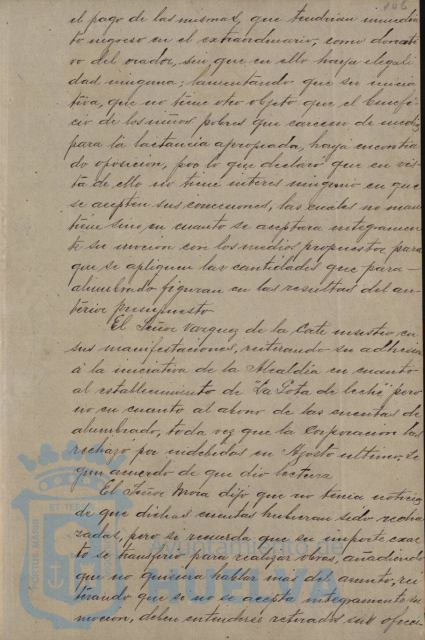 106
el pago de las mismas, que tendrian inmedia
to ingreso en el extraordinario, como donati
vo del orador, sin que en ello haya ilegali
dad ninguna; lamentando que su inicia
tiva, que no tiene otro objeto que el benefi
cio de los niños pobres que carecen de medios
para la lactancia apropiada, haya encontra
do oposicion, por lo que declaró que en vis
ta de ello no tiene interes ninguno en que
se acepten sus concesiones, las cuales no man
tiene sino en cuanto se aceptara integramen
te su mocion con los medios propuestos para
que se apliquen las cantidades que para
alumbrado figuran en las resultas del an
terior presupuesto
El Señor Vazquez de la Corte insistio en
sus manifestaciones, reiterando su adhesion
á la iniciativa de la Alcaldia en cuanto
al establecimiento de "La Gota de leche" pero
no en cuanto al abono de las cuentas de
alumbrado, toda vez que la Corporacion las
rechazó por indebidas en Agosto ultimo, se
gun acuerdo de que dio lectura
El Señor Mora dijo que no tenia noticia
de que dichas cuentas hubieran sido recha
zadas, pero si recuerda que su importe exac
to se transfirio para realizar obras, añadiendo
que no quisiera hablar mas del asunto, rei
terando que si no se acepta integramente su
mocion, deben entenderse retirados sus ofreci